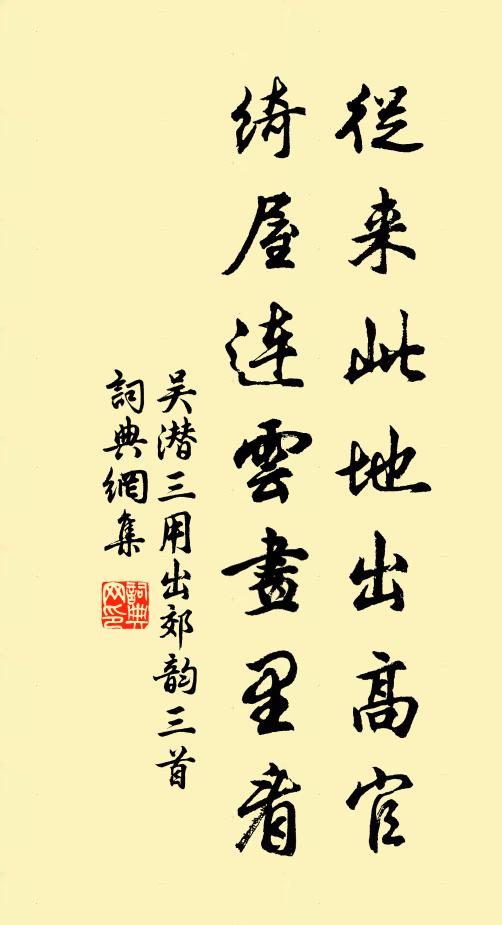 從来此地出高官
綺屋連雲畫里看
吴潜三用出郊韵三首
詞典網集
詞典網印